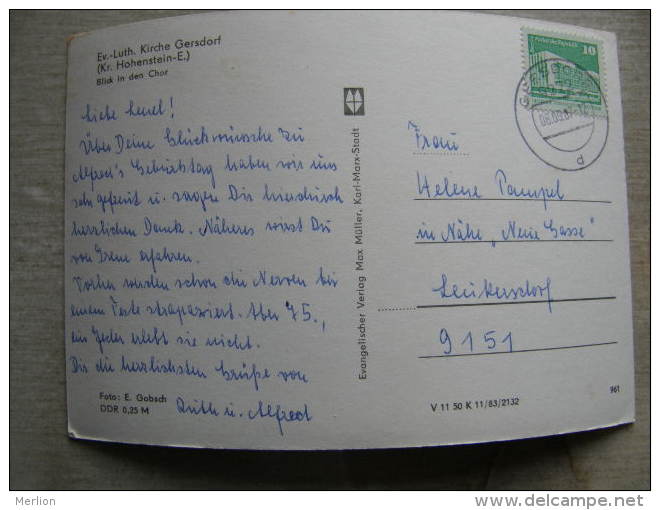 Ev.-Luth. Kirche Gersdorf
(Kr. Hohenstein-E.)
Blick in den Chor
Über Deine Glückwünsche zu
Alfred's Geburtstag haben wir uns
sehr gefreut u. sagen Dir hierdurch
herzlichen Dank. Näheres wirst Du
von Irene erfahren.
Vorher werden schon die Nerven bei
einem Feste strapaziert. Aber 75.,
ein Jeder erlebt sie nicht.
Dir die herzlichsten Grüße von
Ruth u. Alfred
Foto: E. Gobsch
DDR 0,25 M
Evangelischer Verlag Max Müller, Karl-Marx-Stadt
10
d
Frau
Helene Pampel
in Nähe „Neue Gasse"
Leukersdorf
9151
V 11 50 K 11/83/2132
961
Merlion
http://www.delcampe.net